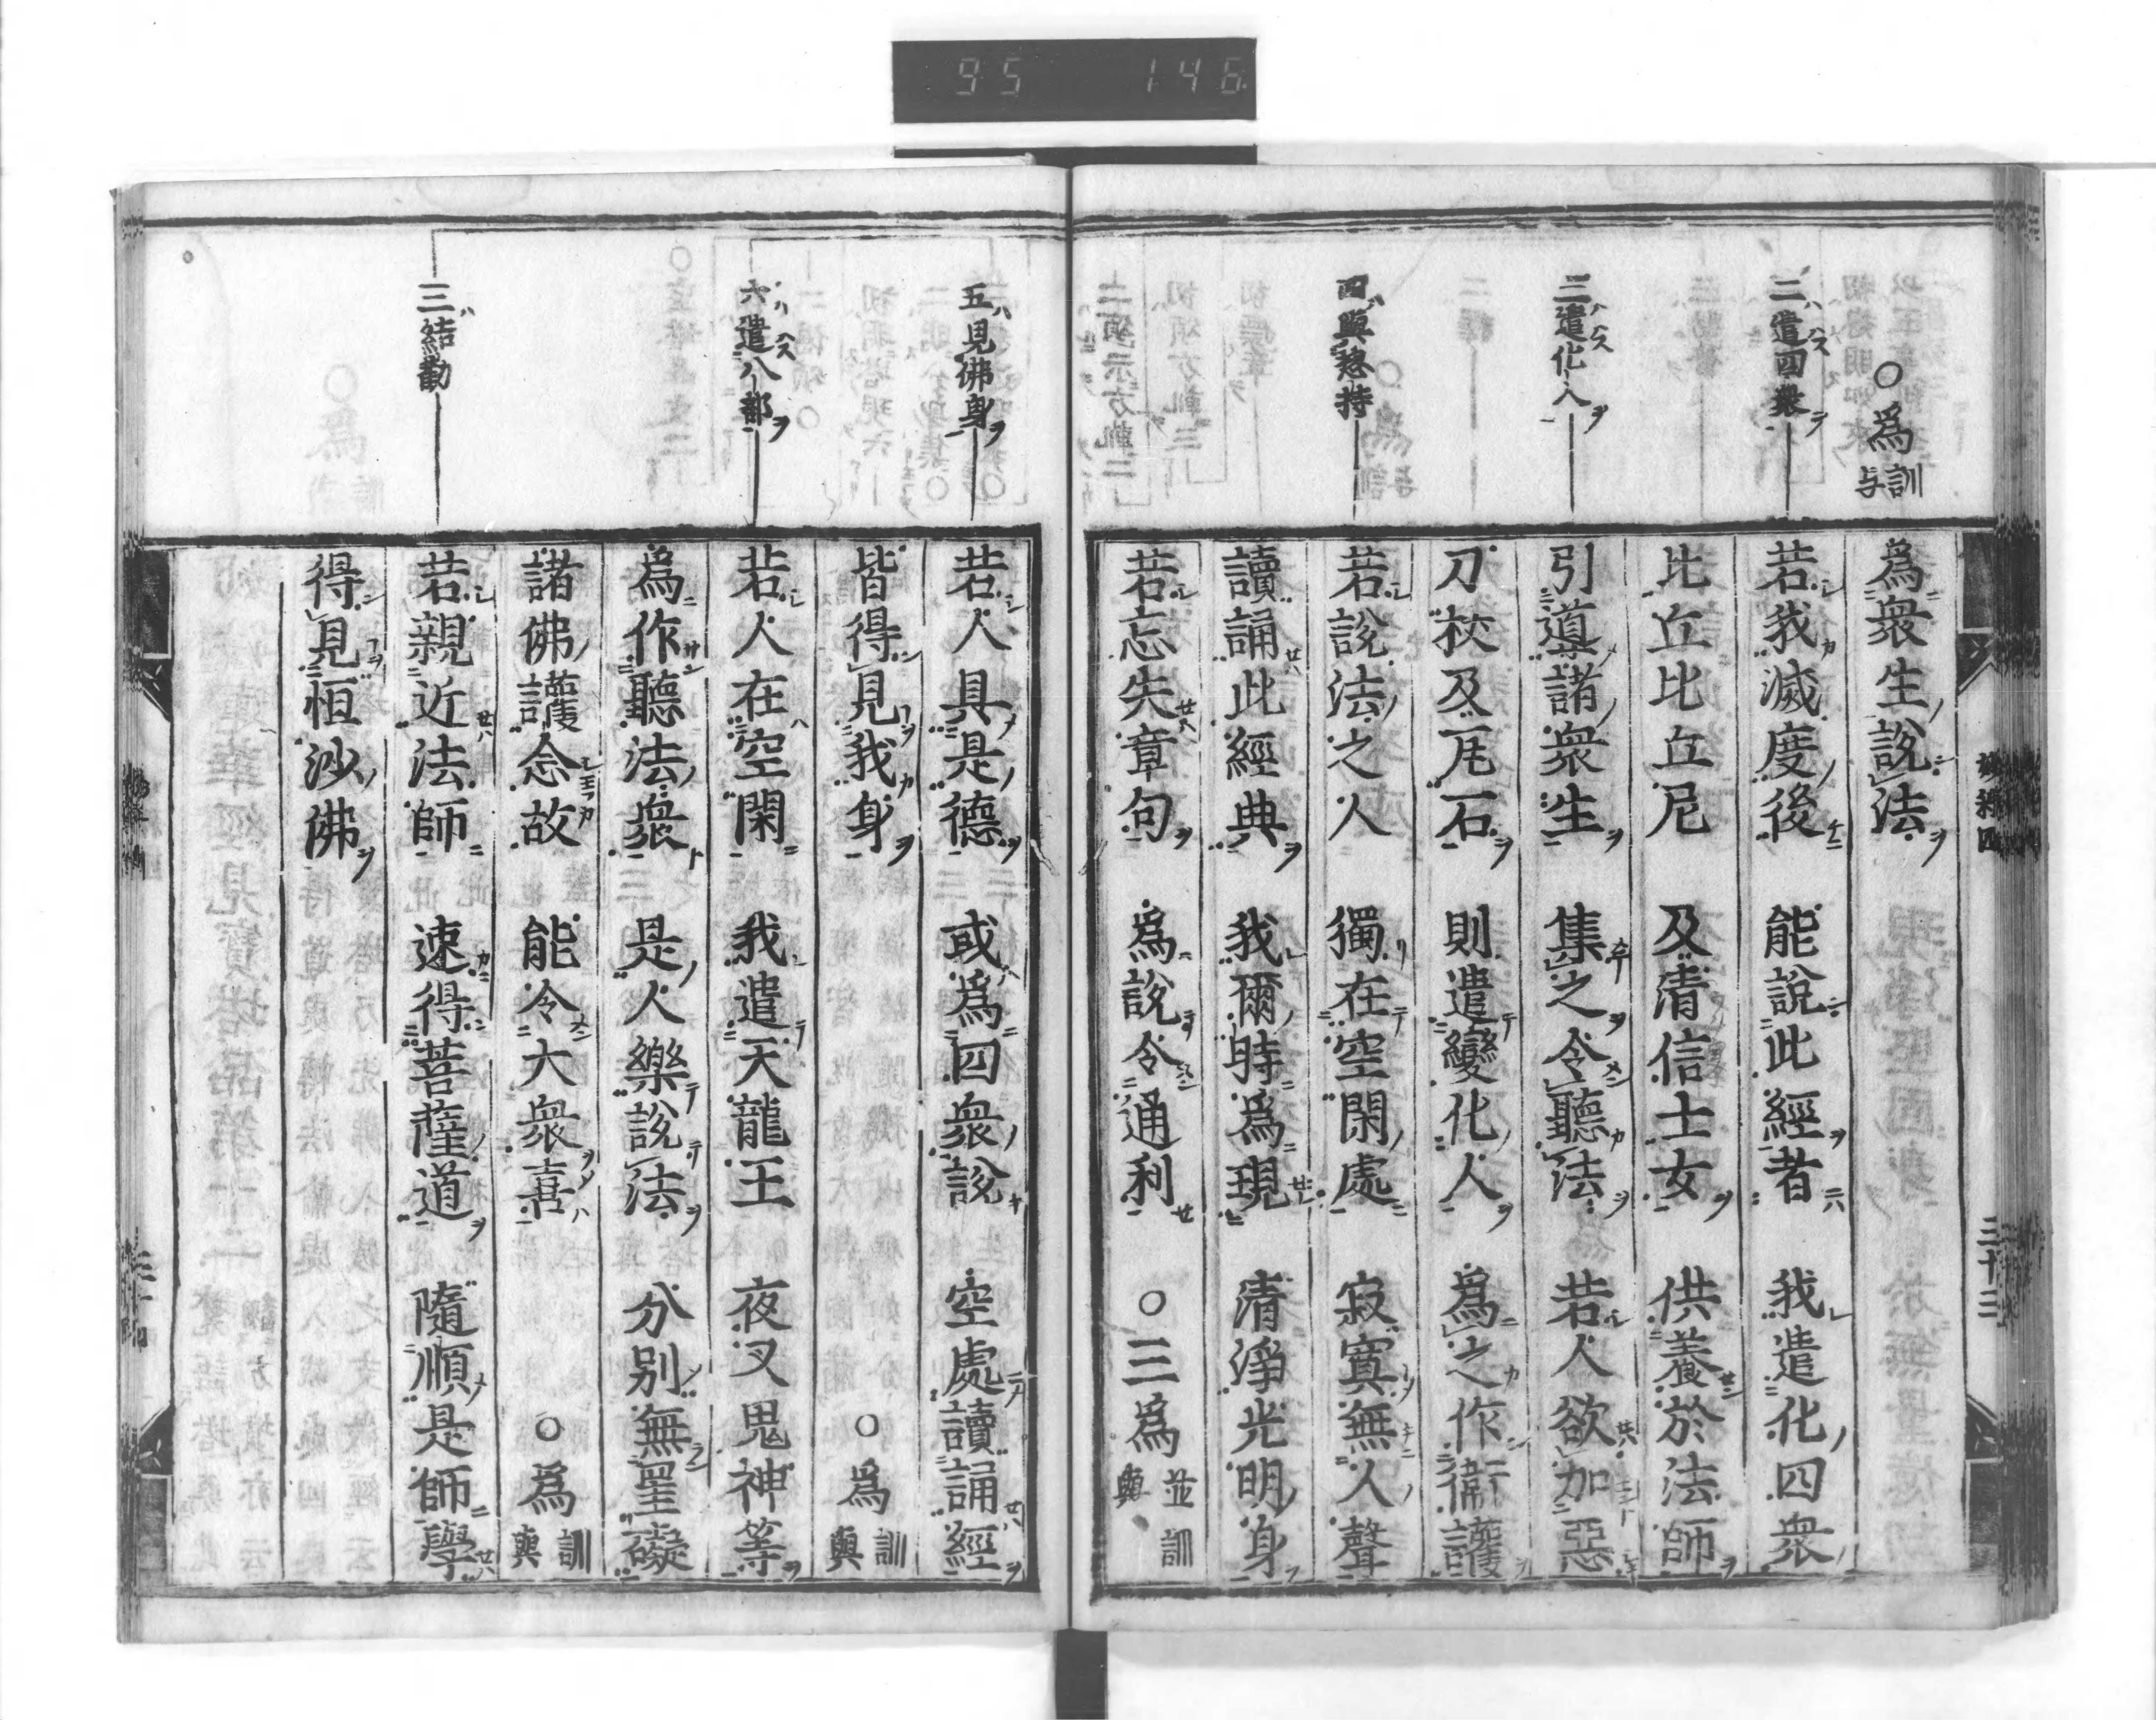 95 146
○爲訓与
爲衆生說法
二遣四衆
若我滅度後 能說此經者 我遣化四衆
比丘比丘尼 及清信士女 供養於法師
三遣化人
引導諸衆生 集之令聽法 若人欲加惡
刀杖及瓦石 則遣變化人 爲之作衞護
四與惣持
若說法之人 獨在空閑處 寂寞無人聲
讀誦此經典 我爾時爲現 清淨光明身
若忘失章句 爲說令通利 ○三爲並訓與
三十三
五見佛身
若人具是德 或爲四衆說 空處讀誦經
皆得見我身 ○爲訓與
六遣八部
若人在空閑 我遣天龍王 夜叉鬼神等
爲作聽法衆 是人樂說法 分別無罣礙
諸佛護念故 能令大衆喜 ○爲訓與
三結勸
若親近法師 速得菩薩道 隨順是師學
得見恒沙佛